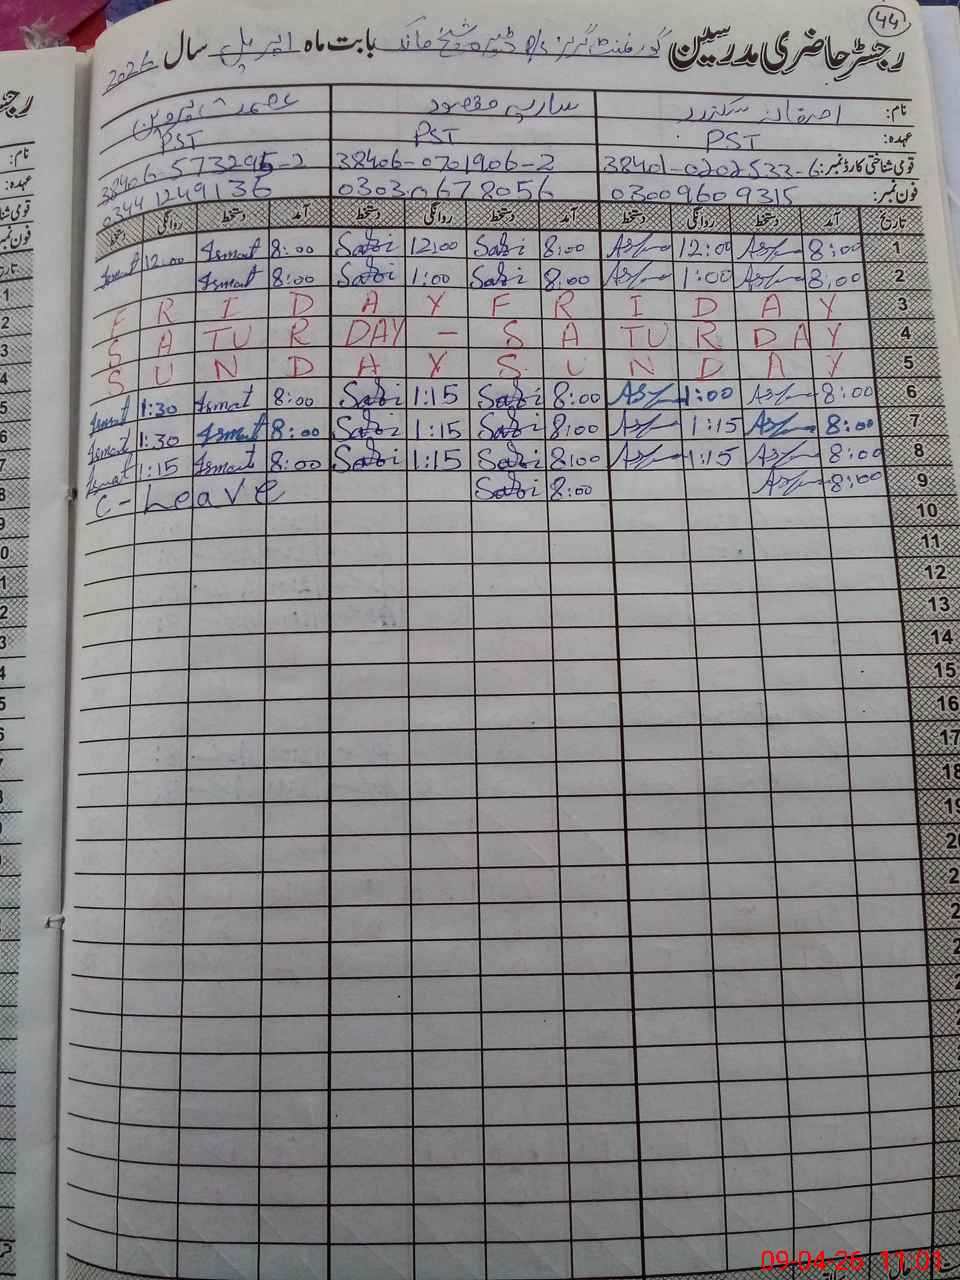 44
رجسٹر حاضری مدرسین گورنمنٹ گرلز P/S ڈیرہ شیخ مانک بابت ماہ اپریل سال 2026
نام: سکندر ساریہ مقصود عصمت پروین
عہدہ: PST PST PST
قومی شناختی کارڈ نمبر: 38401-0202533-6 38406-0701906-2 38406-573295-2
فون نمبر: 03009609315 03030678056 03441249136
تاریخ آمد دستخط روانگی دستخط آمد دستخط روانگی دستخط آمد دستخط روانگی دستخط
1 8:00 12:00 8:00 Sabi 12:00 Sabi 8:00 Ismat 12:00 Ismat
2 8:00 1:00 8:00 Sabi 1:00 Sabi 8:00 Ismat
3 FRIDAY FRIDAY
4 SATURDAY - SATURDAY
5 SUNDAY SUNDAY
6 8:00 1:00 8:00 Sabi 1:15 Sabi 8:00 Ismat 1:30 Ismat
7 8:00 1:15 8:00 Sabi 1:15 Sabi 8:00 Ismat 1:30 Ismat
8 8:00 1:15 8:00 Sabi 1:15 Sabi 8:00 Ismat 1:15 Ismat
9 8:00 8:00 Sabi C-Leave
10
11
12
13
14
15
16
17
18
19
09-04-26 11:01